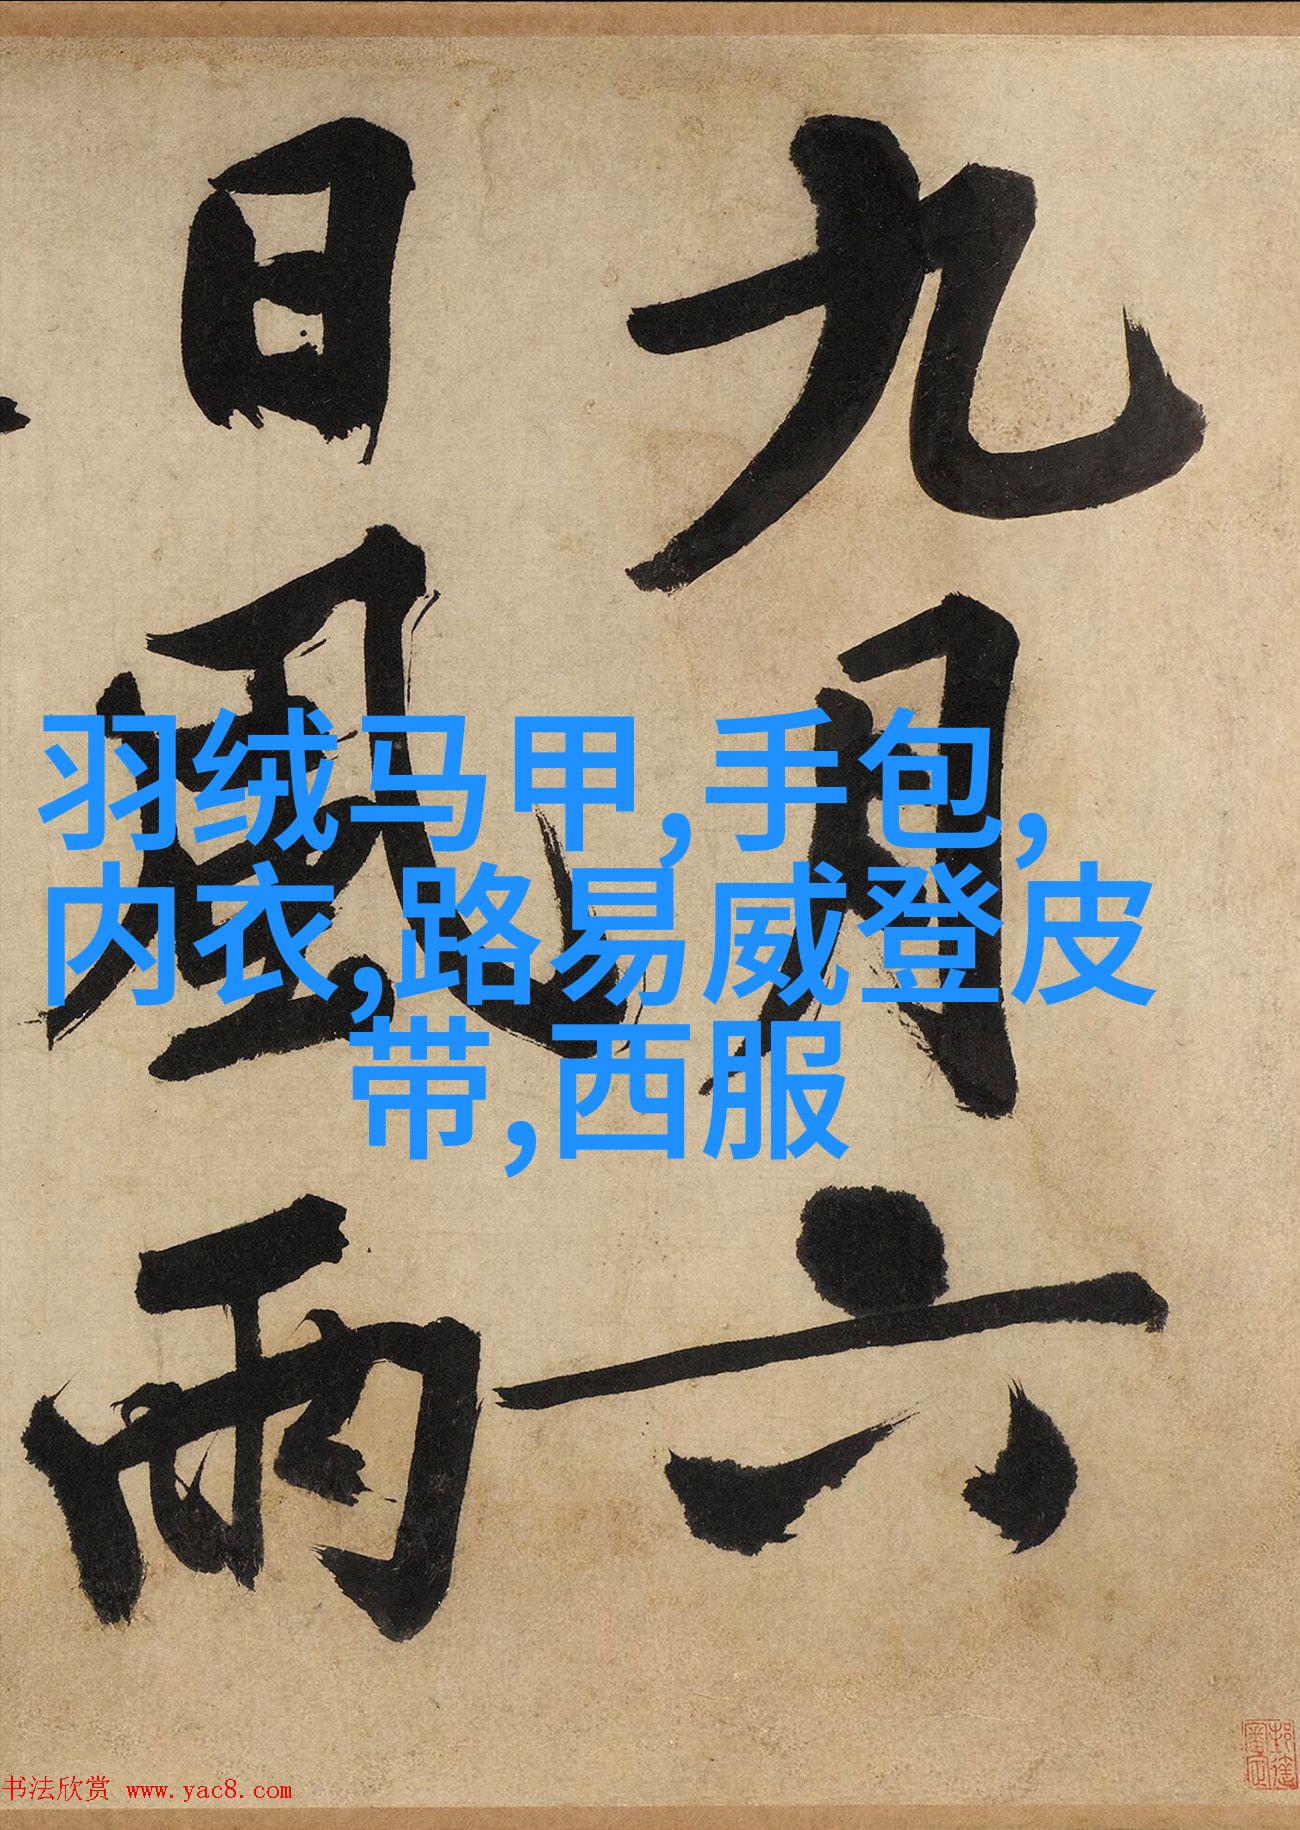 九月六
日風雨
羽绒马甲,手包,
内衣,路易威登皮
带,西服
书法欣赏 www.yac8.com